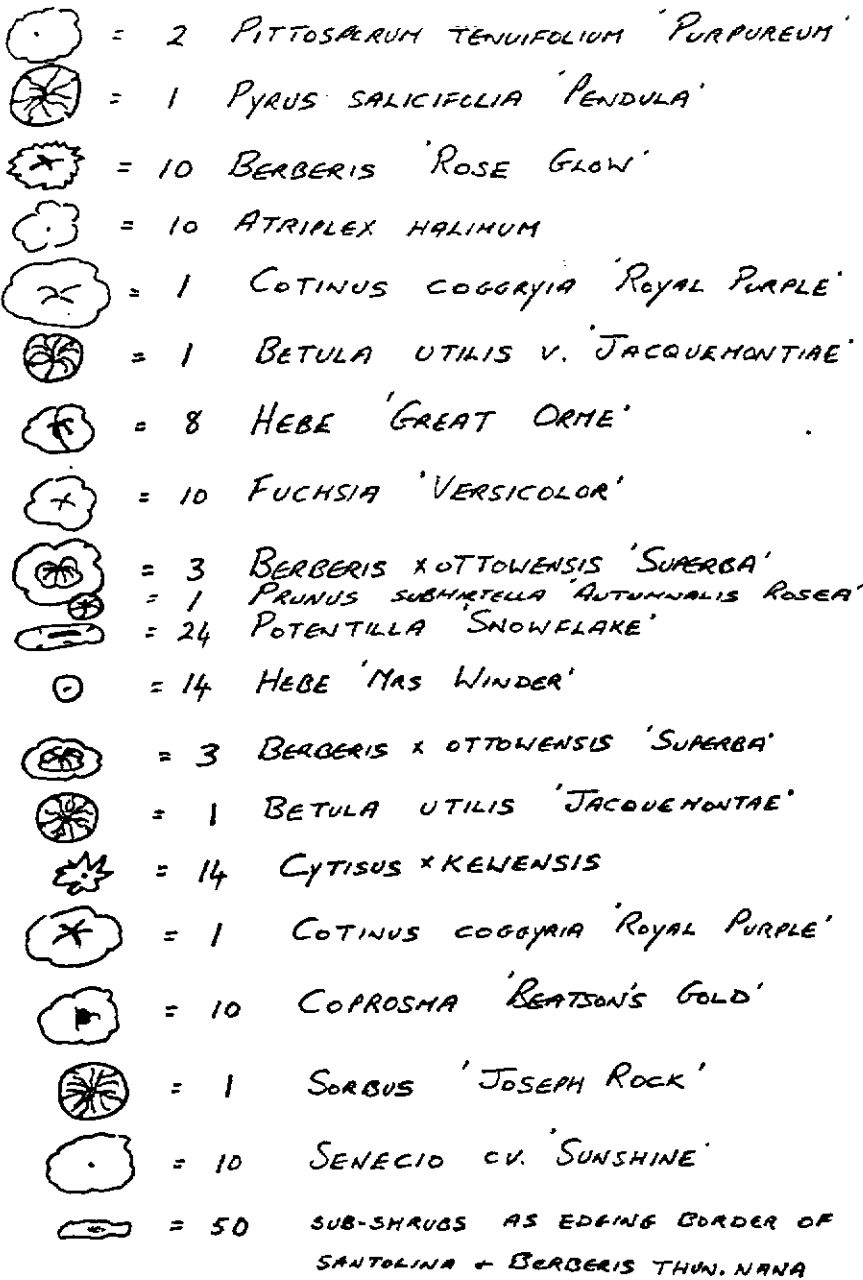 = 2 PITTOSPORUM TENUIFOLIUM 'PURPUREUM'
= 1 PYRUS SALICIFOLIA 'PENDULA'
= 10 BERBERIS 'ROSE GLOW'
= 10 ATRIPLEX HALIMUM
= 1 COTINUS COGGRYIA 'ROYAL PURPLE'
= 1 BETULA UTILIS V. 'JACQUEMONTIAE'
= 8 HEBE 'GREAT ORME'
= 10 FUCHSIA 'VERSICOLOR'
= 3 BERBERIS X OTTOWENSIS 'SUPERBA'
= 1 PRUNUS SUBHIRTELLA 'AUTUMNALIS ROSEA'
= 24 POTENTILLA 'SNOWFLAKE'
= 14 HEBE 'MRS WINDER'
= 3 BERBERIS X OTTOWENSIS 'SUPERBA'
= 1 BETULA UTILIS 'JACQUEMONTAE'
= 14 CYTISUS X KEWENSIS
= 1 COTINUS COGGYRIA 'ROYAL PURPLE'
= 10 COPROSMA 'BEATSON'S GOLD'
= 1 SORBUS 'JOSEPH ROCK'
= 10 SENECIO CV. 'SUNSHINE'
= 50 SUB-SHRUBS AS EDGING BORDER OF
SANTOLINA + BERBERIS THUN. NANA